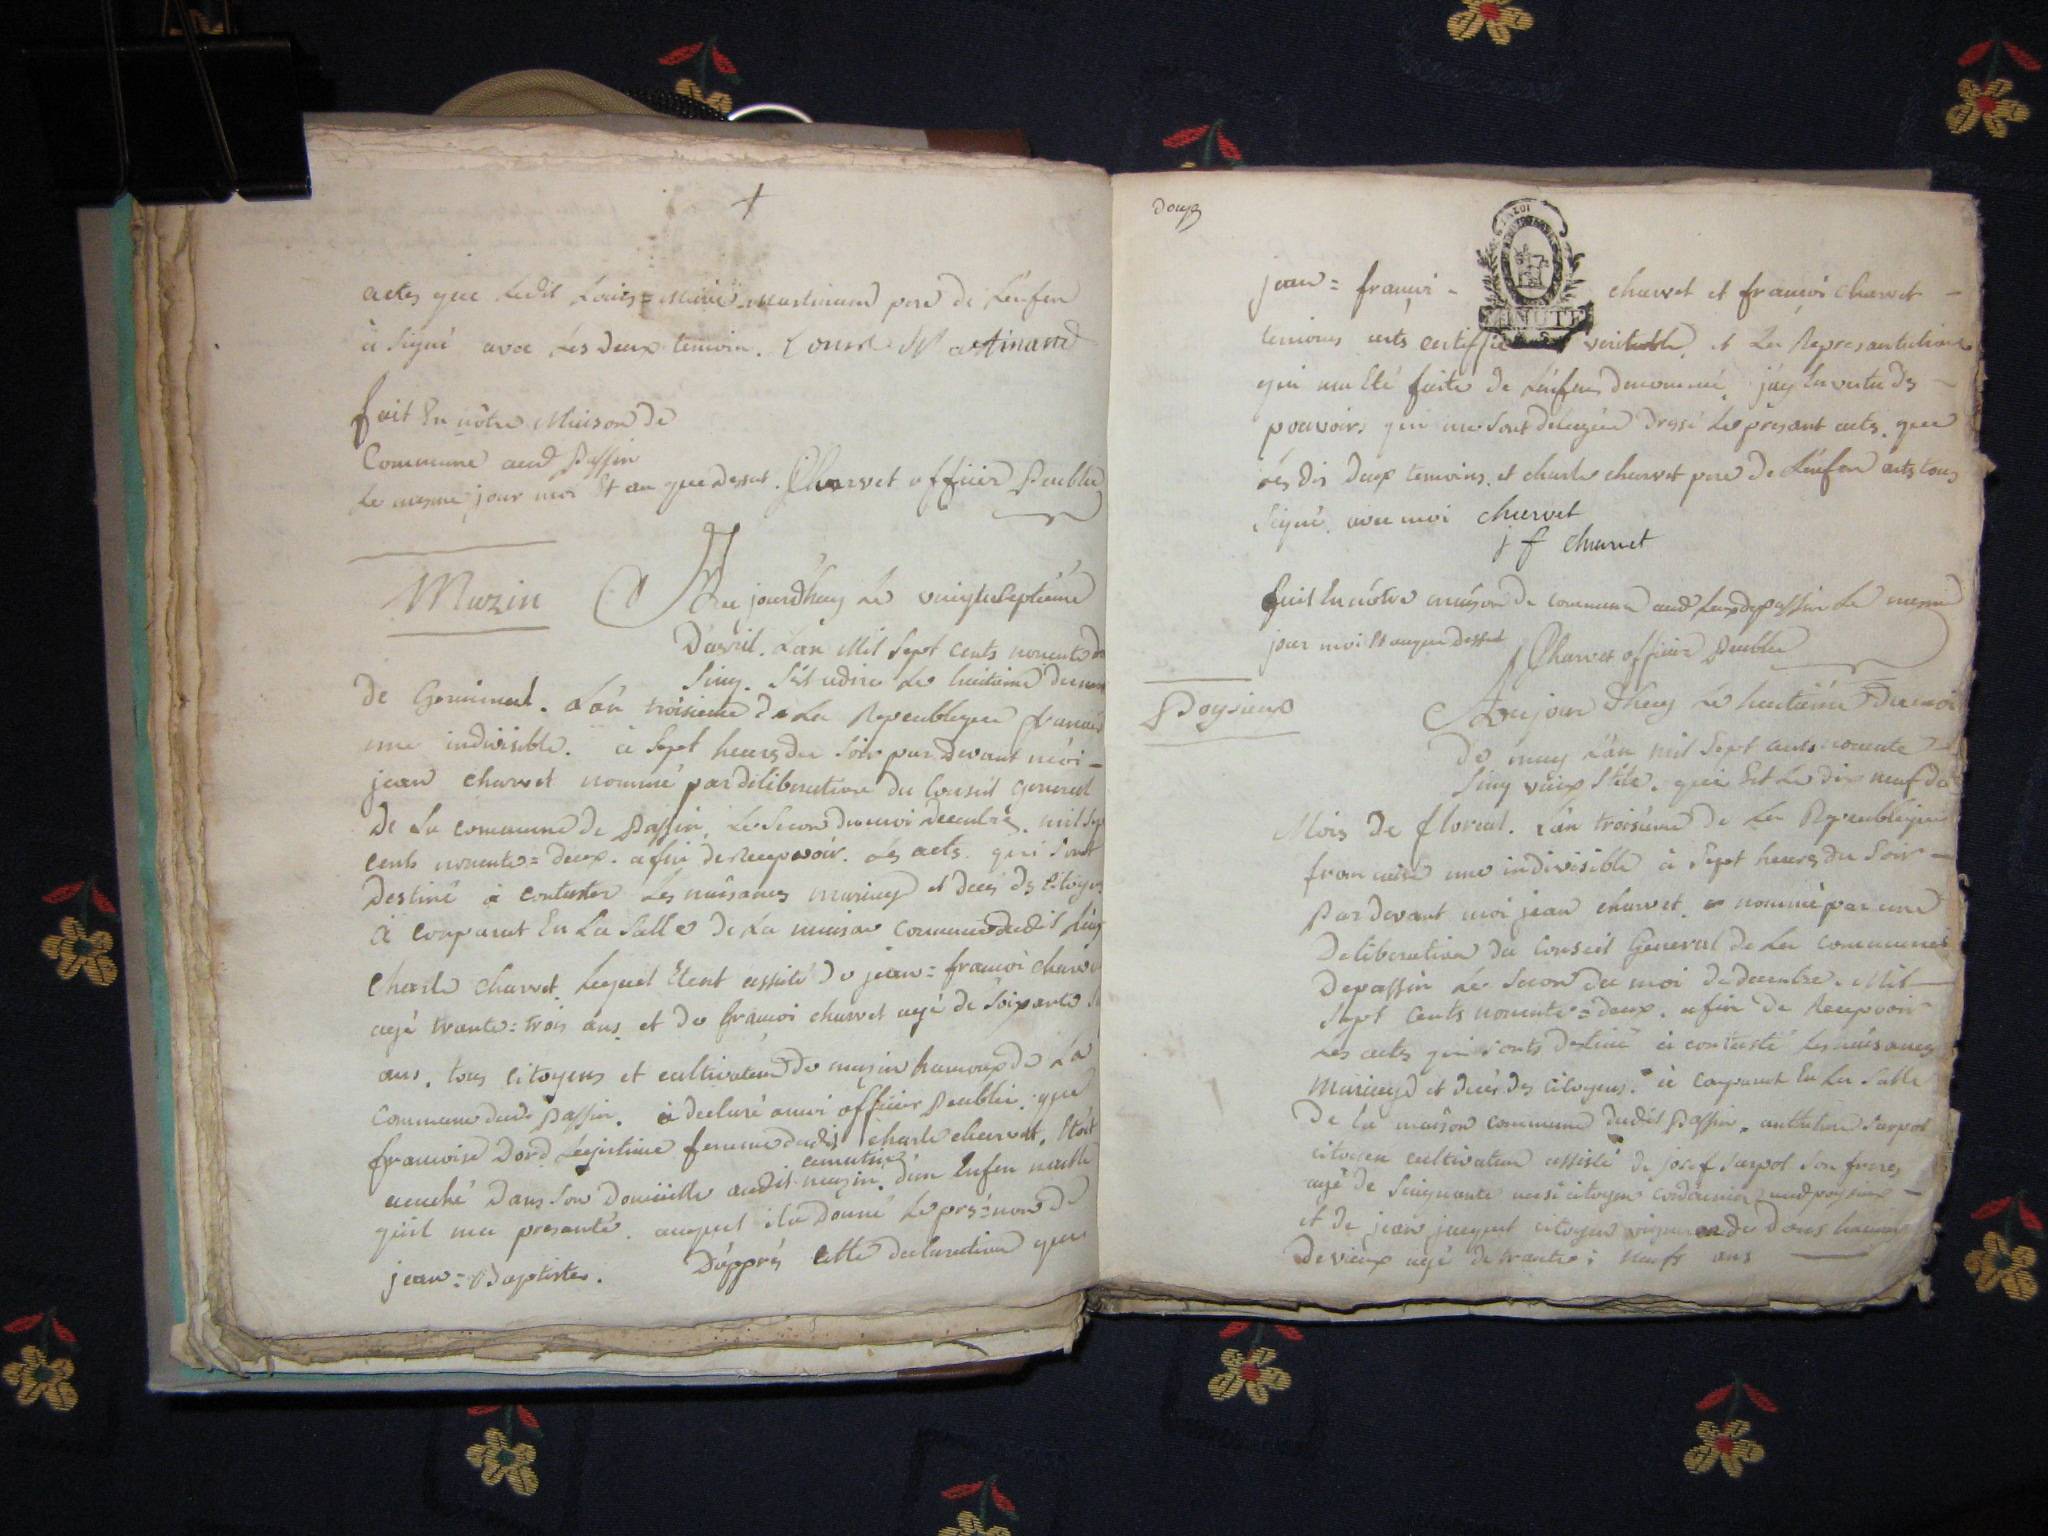 actes que Ledit Louis = Marie Martinand pere de L'enfan
à signé avec Les deux temoin. Louis M Martinand
fait En nôtre Maison de
Commune aud Passin
Le mesme jour moi Et an que dessut. Charvet officier Peublic
Muzin
Au jourdhuy Le vingt Septième
D'avril. L'an Mil Sept Cents nonente
Sinq. S'ét adire Le huitième du
de Germinal. L'an troisieme de La Repeublique francais
une indivisible. à Sept heures du Soir par Devant moi -
jean Charvet nommé par déliberation du Conseil General
De La commune de Passin, Le Secon du moi decembre. mil Sep
cents nonente = deux. afin de Recepvoir. Les acts. qui Sont
Destiné à contaster Les naisances mariag et deces ds Citoyen
à comparut En La Salle de La maison Commune dudit
Charle Charvet. Lequel Etent assisté de jean = francoi charve
agé trante = trois ans. et de francoi charvet agé de Soixante
ans. tous Citoyens et cultivateur de muzin hameaux de La
Commune dud Passin. à declaré amoi officier Peublic. que
francoise Dord Legistime femme dudit charle charvet. Etoit
acuché Dans Son Domicille audit muzin. d'un Enfan male
qu'il ma presanté. auquel il a Donné Le pré = nom de
jean = Baptiste. D'apprés cette declaration que
Douze
jean = francoi - charvet et francoi charvet -
temoins acts certiffie veritable. et La Represantation
qui ma Eté faite de L'enfan denommé. j'ay En vertu ds -
pouvoirs qui me Sont delegée Dressé Le présant acts. que
Lés dis deux temoins. et charle charvet pere de L'enfan acts tous
Signé. avec moi charvet
j f charvet
fait En nôtre maison de commune aud Passin Le mesme
jour moi Et an que dessut Charvet officier Peublic
Poysieux
Aujour d'huy Le huitiéme Du moi
de may L'an mil Sept cents nonente
Sinq vieux Stile. qui Est Le dix neuf du
Mois de floreal. L'an troisième de La Repeublique
francaise une indivisible à Sept heures du Soir -
Par devant moi jean charvet. nommé par une
Deliberation du Conseil General de La commune
De passin Le Secon du moi de decembre. Mil
Sept Cents nonente = deux. afin de Recepvoir
Les acts qui Sonts destiné à contasté Les naisances
Mariage et decès des citoyens. à comparut En La Salle
De La maison commune dudit Passin.
citoyen cultivateur assisté de josef Son freres
agé de Sinquante citoyen cordonnier aud poysieux -
et de jean jacquet citoyen
De vieux agé de trante : neufs ans